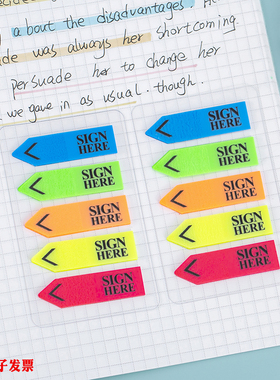 a bout the disadvantages.
was always her shortcoming.
persuade her to change her
we gave in as usual. though.
SIGN
HERE
SIGN
HERE
SIGN
HERE
SIGN
HERE
SIGN
HERE
SIGN
HERE
SIGN
HERE
SIGN
HERE
SIGN
HERE
SIGN
HERE
子发票